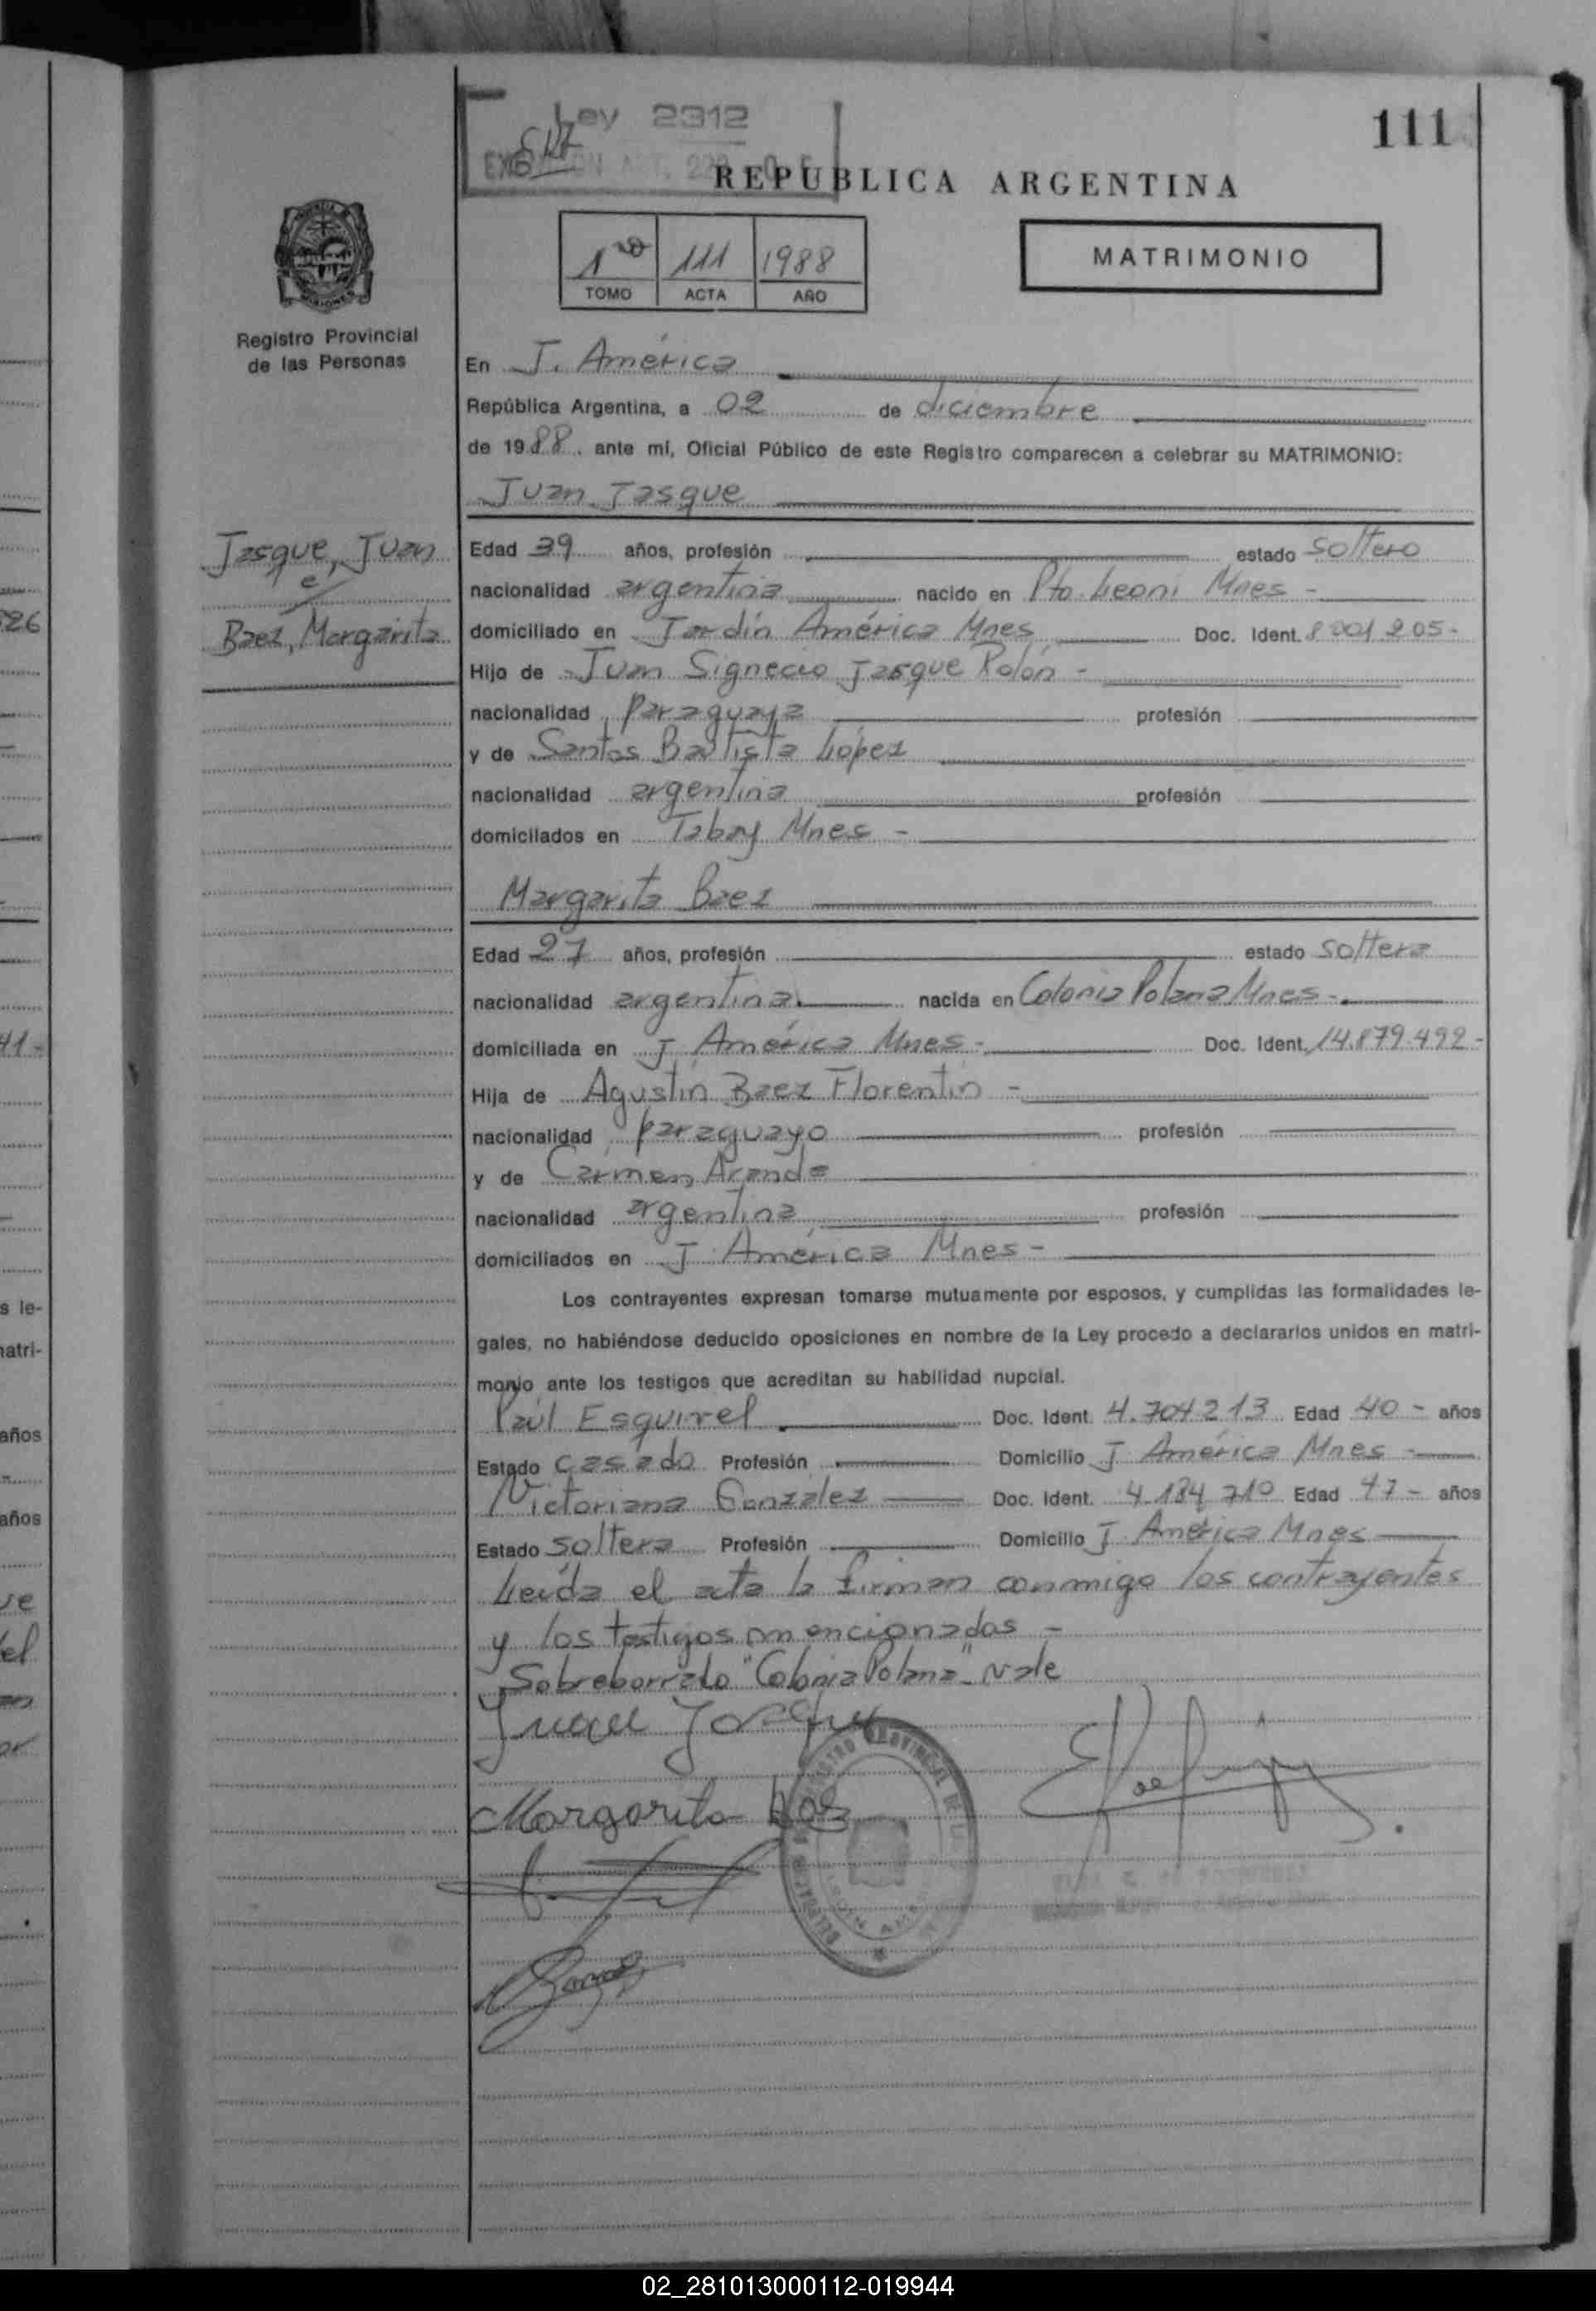 Ley 2312
111
REPUBLICA ARGENTINA
1ro 111 1988
TOMO ACTA AÑO
MATRIMONIO
Registro Provincial
de las Personas
En J. América
República Argentina, a 02 de diciembre
de 1988. ante mí, Oficial Público de este Registro comparecen a celebrar su MATRIMONIO:
Juan Jasque
Jasque, Juan
e/
Baez, Margarita
Edad 39 años, profesión estado soltero
nacionalidad argentina nacido en Pto. Leoni Mnes -
domiciliado en Jardín América Mnes Doc. Ident. 8 001 205-
Hijo de Juan Jasque Rolón -
nacionalidad paraguaya profesión
y de Santos Bautista López
nacionalidad argentina profesión
domicilados en Tabay Mnes -
Margarita Baez
Edad 27 años, profesión estado soltera
nacionalidad argentina nacida en Colonia Polana Mnes -
domiciliada en J. América Mnes - Doc. Ident. 14.879.492 -
Hija de Agustín Baez Florentín -
nacionalidad paraguayo profesión
y de Carmen Aranda
nacionalidad argentina profesión
domiciliados en J. América Mnes -
Los contrayentes expresan tomarse mutuamente por esposos, y cumplidas las formalidades le-
gales, no habiéndose deducido oposiciones en nombre de la Ley procedo a declararlos unidos en matri-
monio ante los testigos que acreditan su habilidad nupcial.
Raúl Esquivel Doc. Ident. 4.704213 Edad 40 - años
Estado casado Profesión Domicilio J. América Mnes -
Victoriana Gonzalez Doc. Ident. 4.184 710 Edad 47 - años
Estado soltera Profesión Domicilio J. América Mnes
Leída el acta la firman conmigo los contrayentes
y los testigos mencionados -
Sobreborrado "Colonia Polana" - Vale
Juan Jasque
Margarita Baez
02_281013000112-019944